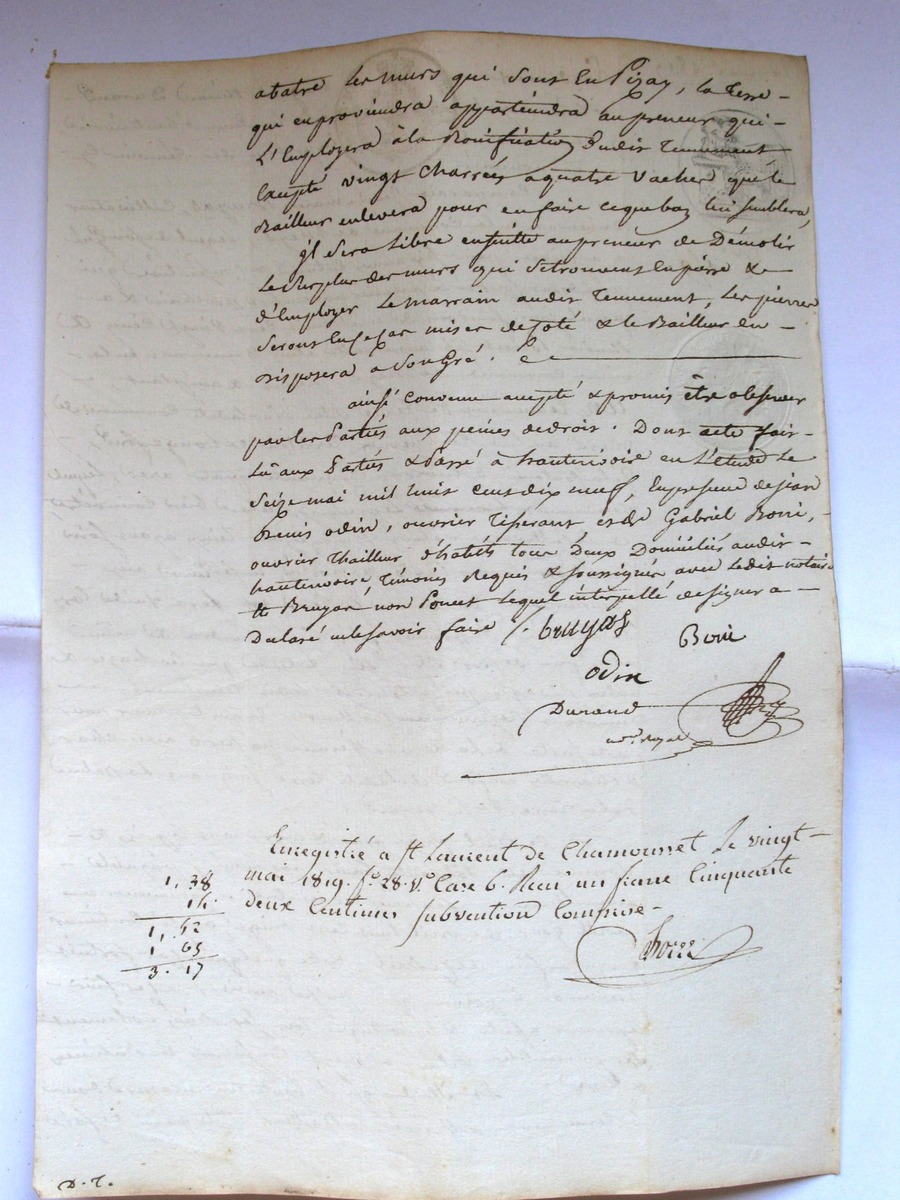 abatre les murs qui sont en Pizay, la terre
qui en proviendra appartiendra au preneur qui
L'Employera à la Bonification dudit Tennement
Excepté vingt Charrées a quatre Vaches que le
Bailleur enlevera pour en faire ce que bon lui semblera,
il sera Libre ensuitte au preneur de Démolir
Le surplus des murs qui se trouvent en pierre &
d'Employer Le marrain audit Tennement, Les pierres
seront mises de Coté & le Bailleur en
Disposera a son Gré.
ainsi Convenu accepté & promis être observer
par les Parties aux peines de droit. Dont acte fait
Lu aux Parties & Passé à hauterivoire en L'étude Le
Seize mai mil huit cent dix neuf, En presence de jean
Denis odin, ouvrier Tisserant et de Gabriel Boni,
ouvrier Thailleur d'habits tous deux Domiciliés audit
hauterivoire, Témoins Requis & soussignés avec Ledit notaire
& Bruyas non Poncet Lequel interpellé de signer a
Declaré ne le savoir faire /. bruyas
Boni
odin
Durand
not. Royal
Enregistré a St Laurent de Chamousset Le vingt
mai 1819. fo. 28. Vo. Case 6. Recu un franc Cinquante
deux Centimes subvention Comprise
1, 38
14.
1, 52
1 65
3. 17
D. T.